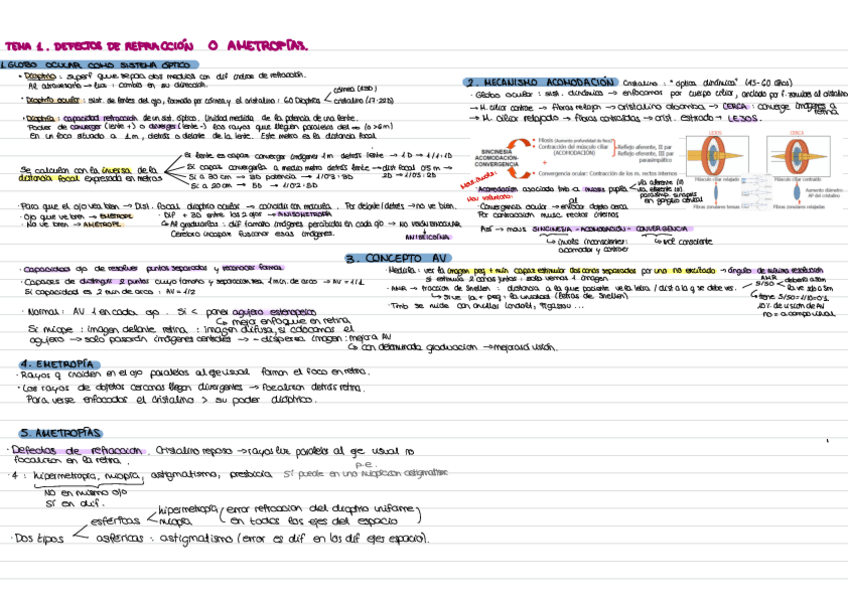 TEMA 1. DEFECTOS DE REFRACCIÓN O AMETROPÍAS.
1. GLOBO OCULAR COMO SISTEMA ÓPTICO
· Dioptrio: superf que separa dos medios con dif índice de refracción.
Al atravesarlo → luz: cambia en su dirección.
· Dioptrio ocular: sist. de lentes del ojo, formado por córnea y el cristalino: 60 Dioptrías
córnea (43D)
cristalino (17-22D)
· Dioptría: capacidad refracción de un sist. óptico. Unidad medida de la potencia de una lente.
Poder de converger (lente +) o diverger (lente -) los rayos que llegan paralelos del ∞ (o >6m)
En un foco situado a 1m, detrás o delante de la lente. Este metro es la distancia focal.
Se calculan con la inversa de la distancia focal expresada en metros
Si lente es capaz converger imágenes 1m detrás lente → 1D → 1/1=1D
Si capaz convergerla a medio metro detrás lente → dist focal 0'5m → 2D → 1/0'5=2D
Si a 30 cm → 3D potencia → 1/0'3=3D
Si a 20 cm → 5D → 1/0'2=5D
· Para que el ojo vea bien → Dist. focal dioptrio ocular → coincida con mácula. Por delante/detrás → no ve bien.
· Ojo que ve bien → EMÉTROPE
· No ve bien → AMÉTROPE
· Dif + 3D entre los 2 ojos → ANISOMETROPÍA
↳ Al graduarlos: dif tamaño imágenes percibidas en cada ojo → NO VISIÓN BINOCULAR
Cerebro incapaz fusionar esas imágenes.
ANISEICONIA
2. MECANISMO ACOMODACIÓN
Cristalino: "óptica dinámica" (45-60 años)
· Globo ocular: sist. dinámico → enfocamos por cuerpo ciliar, anclado por f. zonulares al cristalino
→ M. ciliar contrae → fibras relajan → cristalino abomba → CERCA: converge imágenes a retina
→ M. ciliar relajado → fibras contraídas → crist. estirado → LEJOS.
SINCINESIA
ACOMODACIÓN-
CONVERGENCIA
• Miosis (Aumento profundidad de foco)
• Contracción del músculo ciliar (ACOMODACIÓN)
Reflejo aferente, II par
Reflejo eferente, III par parasimpático
+
• Convergencia ocular: Contracción de los m. rectos internos
LEJOS
CERCA
Músculo ciliar relajado
Músculo ciliar contraído
Fibras zonulares tensas
Fibras zonulares relajadas
Aumento diámetro AP del cristalino
· Acomodación asociada tmb a miosis pupila
vía aferente (II)
vía eferente (III)
parasimp. sinapsis en ganglio ciliar
· Convergencia ocular → enfocar objeto cerca
Por contracción musc. recto internos
Así → mov SINCINESIA - ACOMODACIÓN - CONVERGENCIA
↳ involt inconsciente: acomodar y converger
↳ vol consciente
3. CONCEPTO AV
· Capacidad ojo de resolver puntos separados y reconocer formas
· Capaces de distinguir 2 puntos cuyo tamaño y separación sea 1 min. de arco → AV = 1/1
Si capacidad es 2 min de arco: AV = 1/2
· Normal: AV 1 en cada ojo. Si < panel agujero estenopeico
↳ mejora enfoque en retina
Si miope: imagen delante retina: imagen difusa, si colocamos el
agujero → solo pasarán imágenes centrales → - dispersa imagen: mejora AV
↳ con determinada graduación → mejorará visión.
· Medirla: ver la imagen peq + min capaz estimular dos conos separados por uno no excitado → ángulo de mínima resolución
estimula 2 conos juntos: solo vemos 1 imagen.
· AMR → fracción de Snellen: distancia a la que paciente ve la letra / dist a la q se debe ver.
↳ Si ve la + peq = la unidad (letras de Snellen)
· Tmb se mide con anillos Landolt, Pigassou...
4. EMETROPÍA
· Rayos q inciden en el ojo paralelos al eje visual forman el foco en retina.
· Los rayos de objetos cercanos llegan divergentes → focalizan detrás retina.
Para verse enfocados el cristalino > su poder dióptrico.
5. AMETROPÍAS
· Defectos de refracción. Cristalino reposo → rayos luz paralelos al eje visual no
focalizan en la retina.
· 4: hipermetropía, miopía, astigmatismo, presbicia
NO en mismo ojo
Sí en dif.
p.e. Sí puede en uno miopía con astigmatismo
· Dos tipos
esféricas
hipermetropía
miopía
(error refracción del dioptrio uniforme en todos los ejes del espacio)
asféricas: astigmatismo (error es dif en los dif ejes espacio).